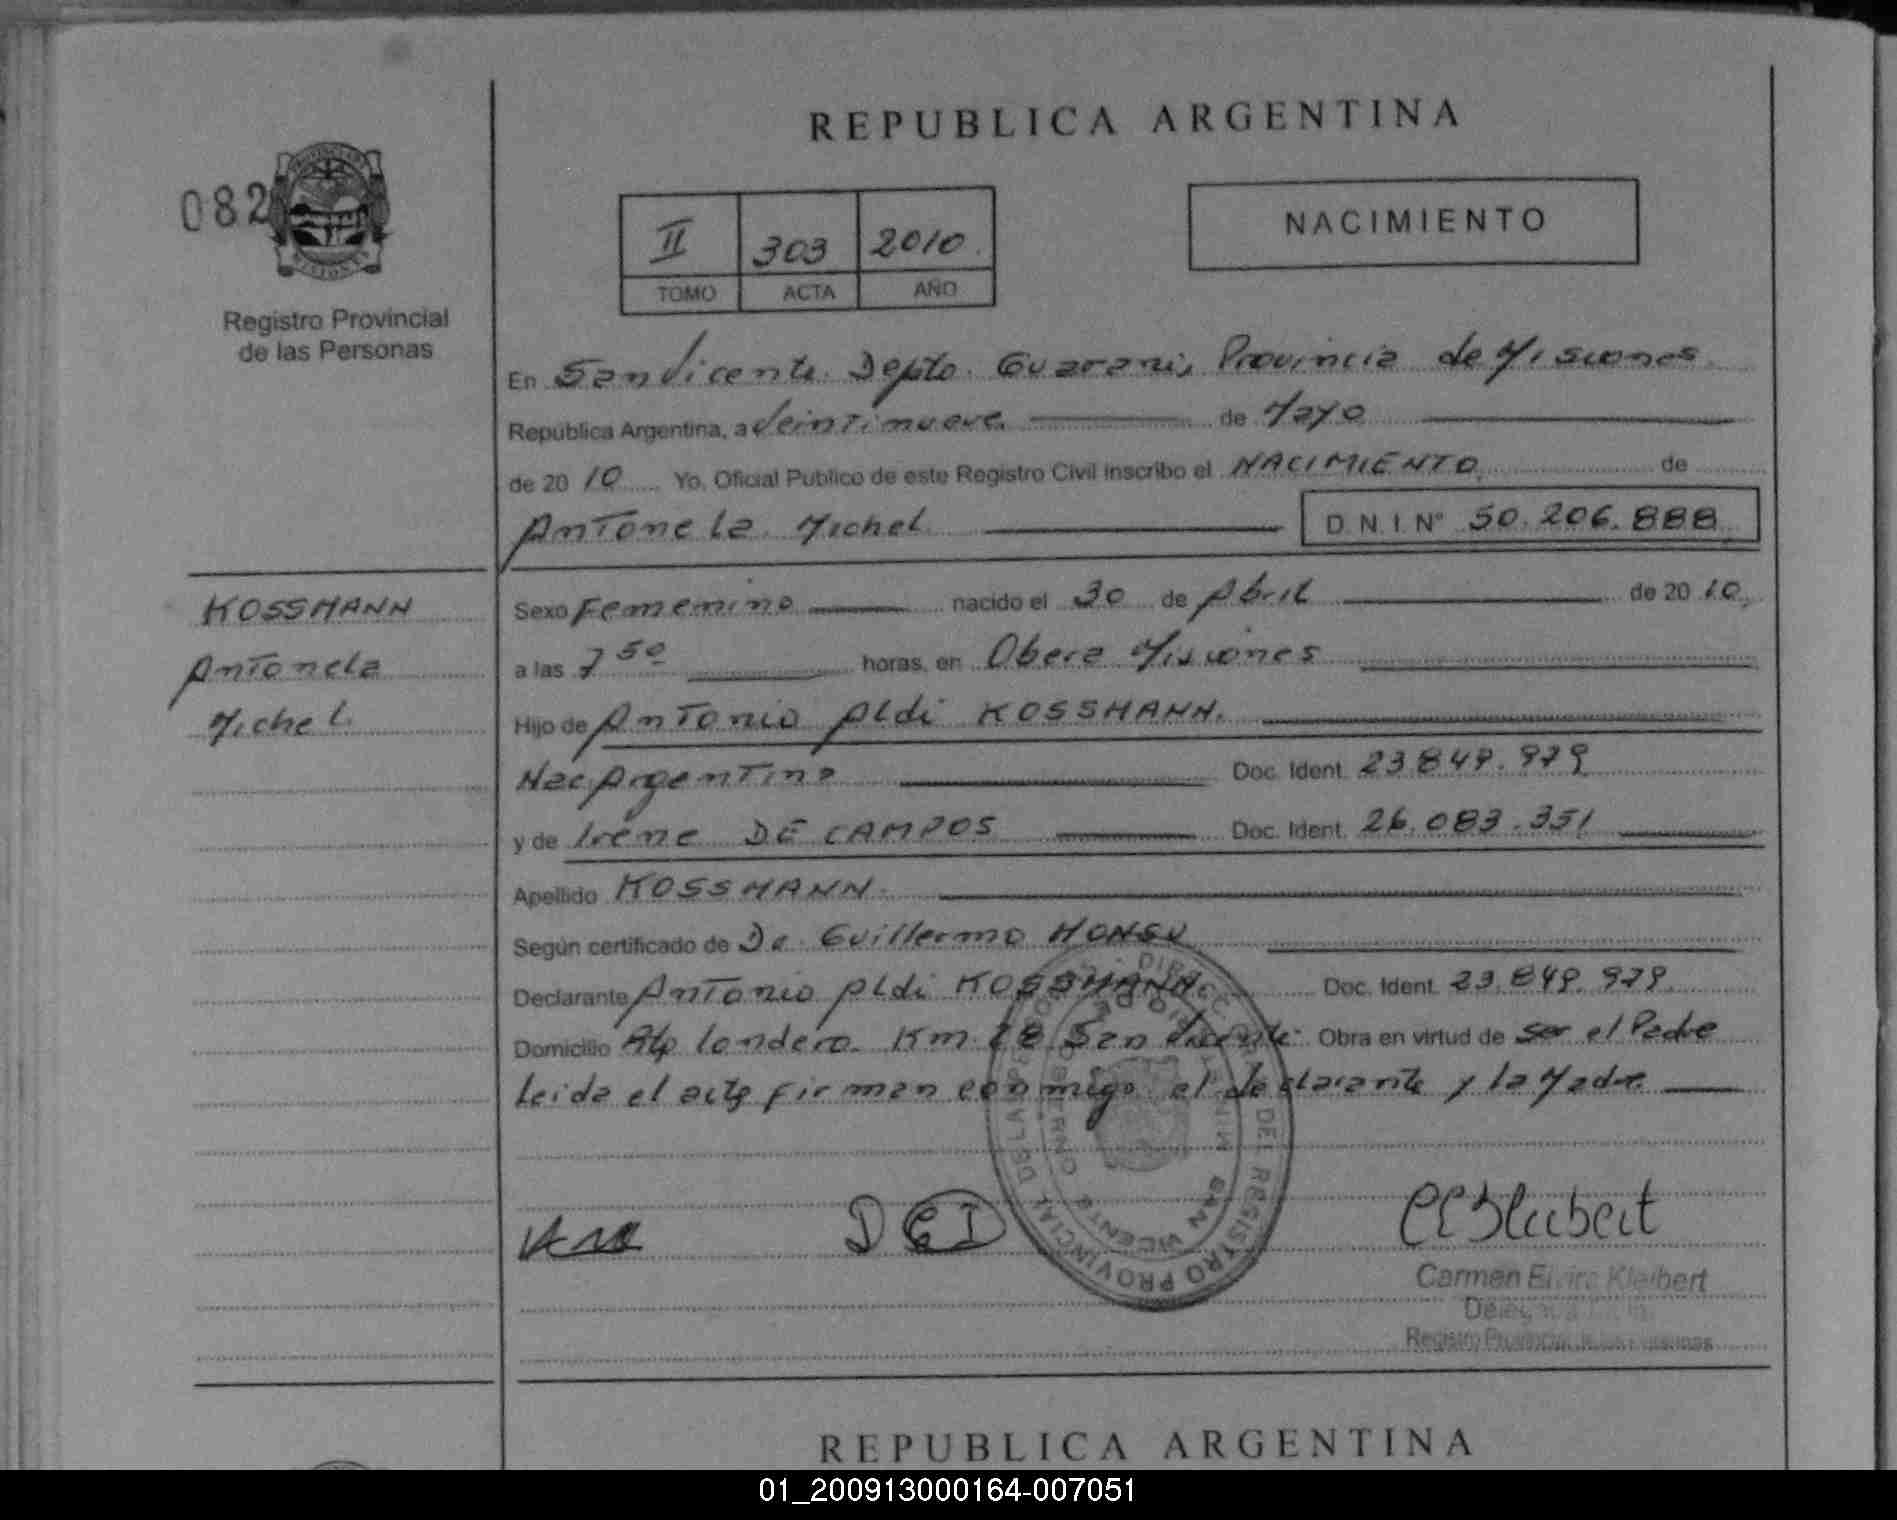 REPUBLICA ARGENTINA
082
II 303 2010
TOMO ACTA AÑO
NACIMIENTO
Registro Provincial
de las Personas
En San Vicente. Depto. Guarani, Provincia de Misiones
República Argentina, a Veintinueve de Mayo
de 2010 Yo, Oficial Publico de este Registro Civil inscribo el NACIMIENTO de
Antonela Michel D.N.I. Nº 50.206.888
KOSSMANN
Antonela
Michel
Sexo Femenino nacido el 30 de Abril de 2010,
a las 7 50 horas, en Obera Misiones
Hijo de Antonio Aldi KOSSMANN.
Nac Argentina Doc. Ident. 23.849.979
y de Irene DE CAMPOS Doc. Ident. 26.083.351
Apellido KOSSMANN.
Según certificado de Dr. Guillermo
Declarante Antonio Aldi KOSSMANN. Doc. Ident. 23.849.979.
Domicilio londero. Km 28 San Vicente. Obra en virtud de ser el Padre
Leida el acta firman conmigo el declarante y la Madre
DIREC. GRAL. DEL REGISTRO PROVINCIAL DE LAS PERSONAS
SAN VICENTE
Carmen Elvira Kleibert
Registro Provincial de las Personas
REPUBLICA ARGENTINA
01_200913000164-007051